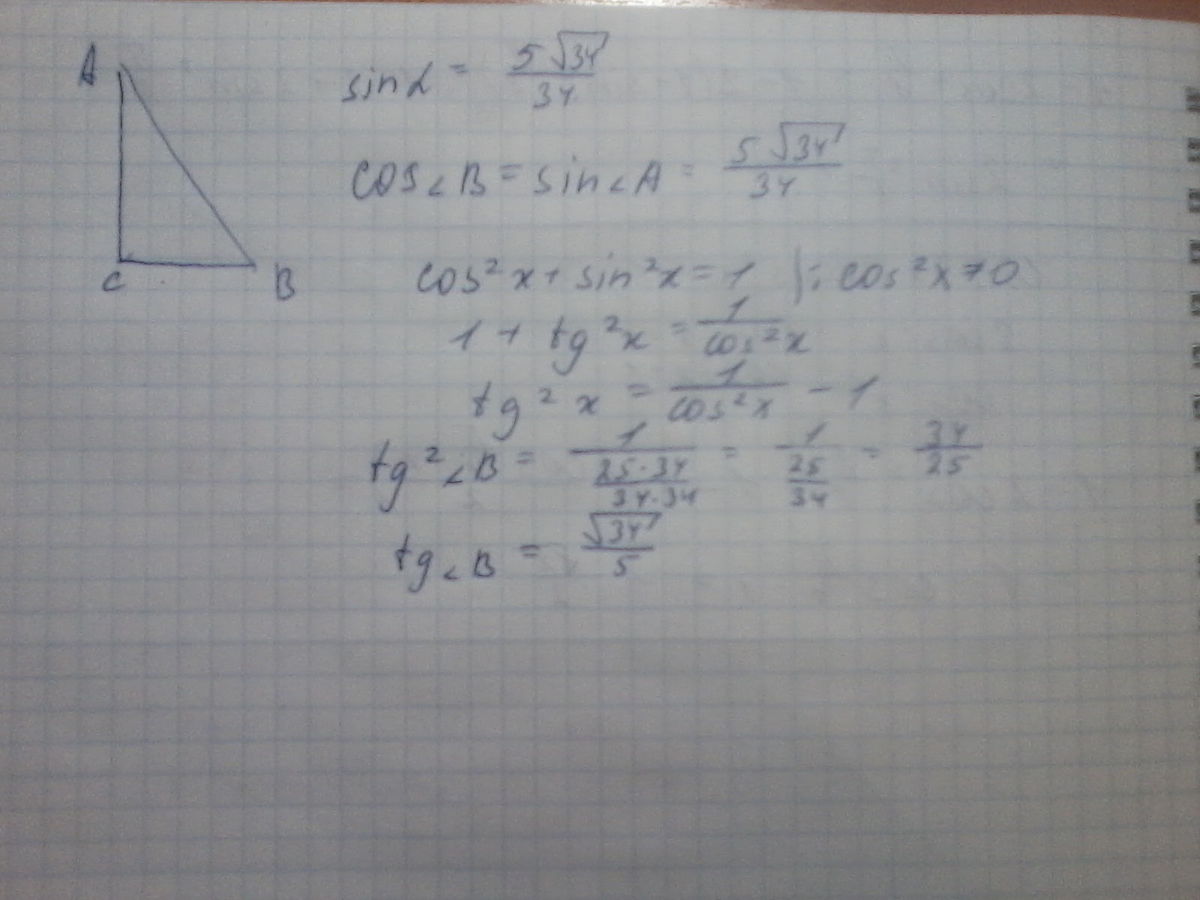 A
C
B
sinα = 5√34/34
cos∠B = sin∠A = 5√34/34
cos²x + sin²x = 1 |: cos²x ≠ 0
1 + tg²x = 1/cos²x
tg²x = 1/cos²x − 1
tg²∠B = 1/(25·34/34·34) = 1/(25/34) = 34/25
tg∠B = √34/5